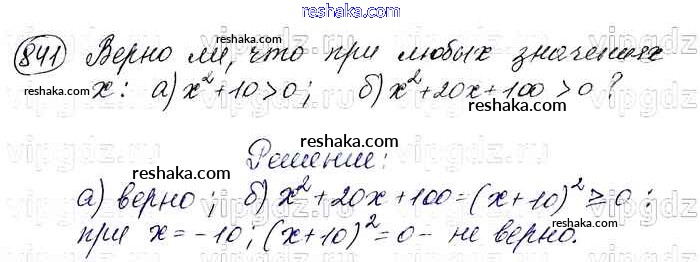 reshaka.com
841 Верно ли, что при любых значениях
reshaka.com
x: а) x²+10>0; б) x²+20x+100>0?
reshaka.com
reshaka.com
Решение:
reshaka.com
а) верно; б) x²+20x+100=(x+10)²≥0;
reshaka.com
при x=-10; (x+10)²=0 - не верно.
reshaka.com